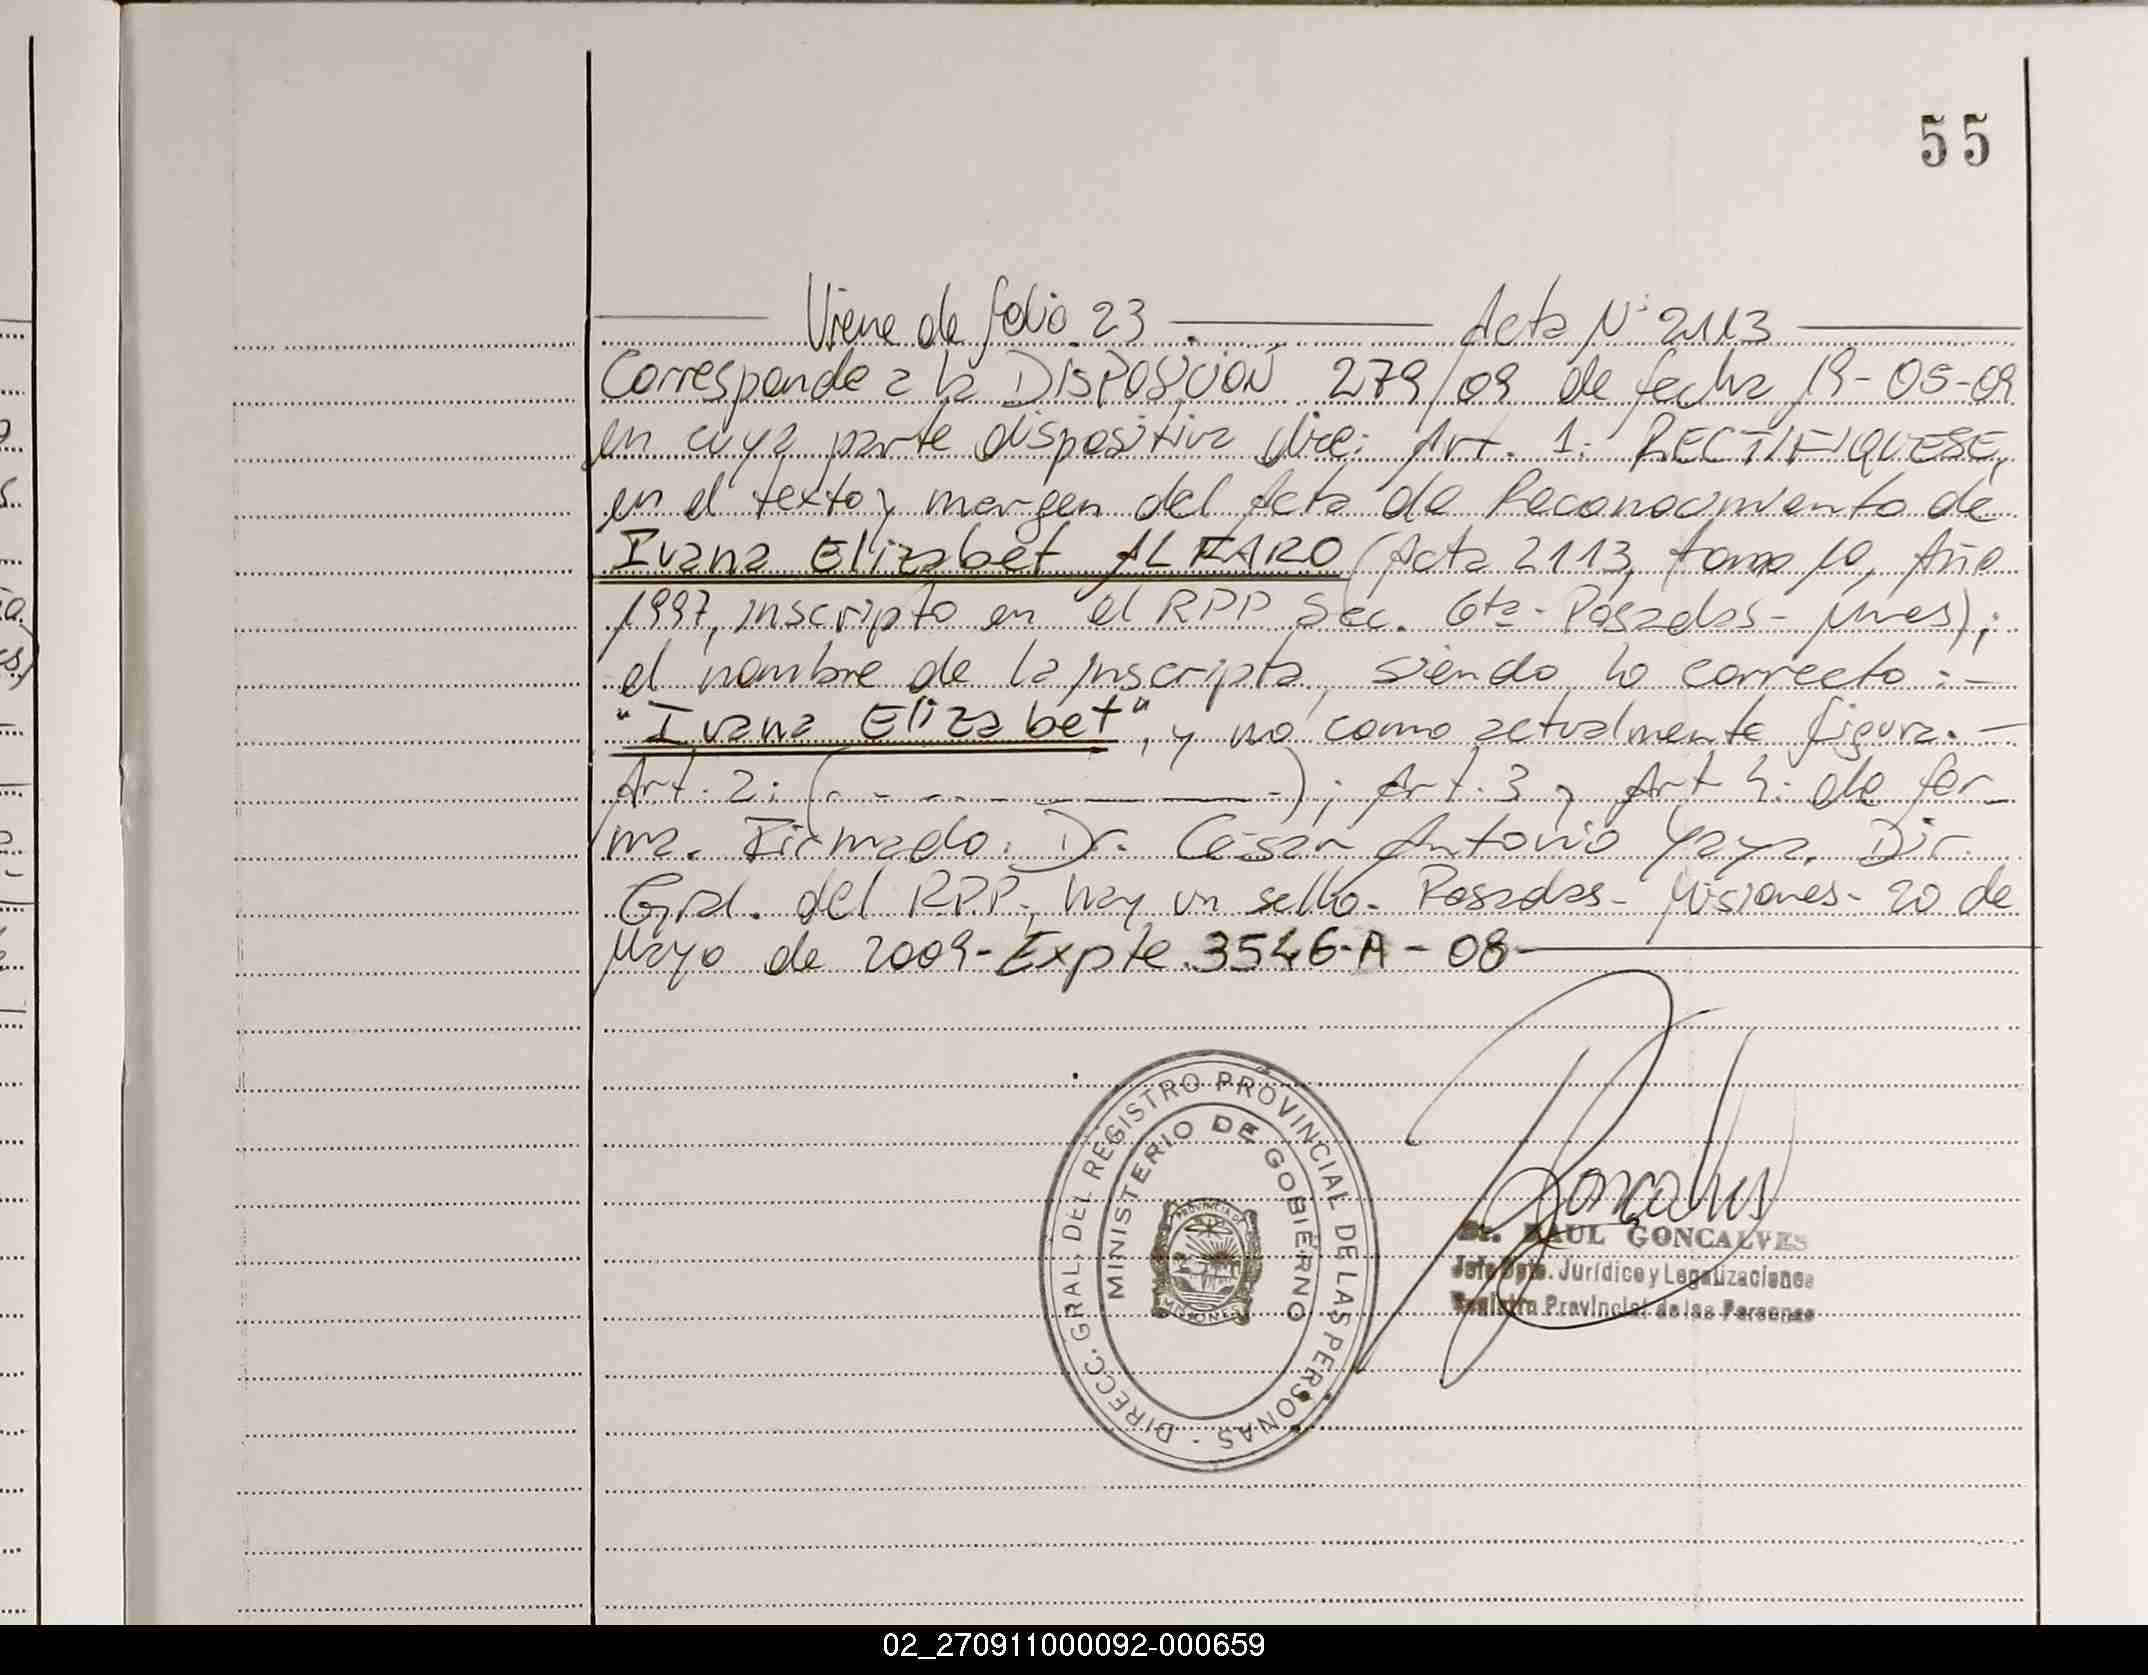 55
Viene de folio 23 — Acta N° 2113 —
Corresponde a la DISPOSICIÓN 279/09 de fecha 19-05-09
en cuya parte dispositiva dice: Art. 1: RECTIFIQUESE,
en el texto y margen del Acta de Reconocimiento de
Ivana Elizabet ALFARO (Acta 2113, tomo 10, Año
1997, inscripto en el RPP Sec. 6ta - Posadas - Mnes);
el nombre de la inscripta, siendo lo correcto: -
"Ivana Elizabet", y no como actualmente figura. -
Art. 2: (- - - — — -); Art. 3 y Art 4: de for_
ma. Firmado: Dr. César Antonio Yaya. Dir.
Gral. del RPP., hay un sello. Posadas - Misiones - 20 de
Mayo de 2009 - Expte 3546-A-08 —
DIRECC. GRAL. DEL REGISTRO PROVINCIAL DE LAS PERSONAS -
MINISTERIO DE GOBIERNO
PROVINCIA DE
MISIONES
Goncalves
Dr. RAUL GONCALVES
Jefe Dpto. Jurídico y Legalizaciones
Registro Provincial de las Personas
02_270911000092-000659